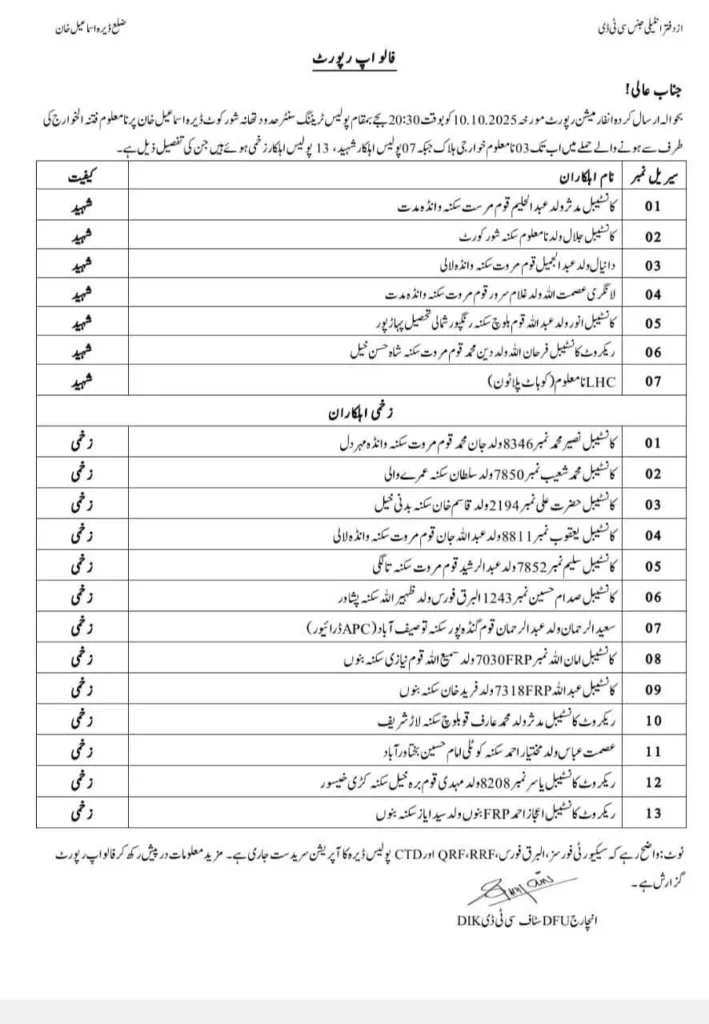 از دفتر انٹیلی جنس سی ٹی ڈی ضلع ڈیرہ اسماعیل خان
فالو اپ رپورٹ
جناب عالی!
بحوالہ ارسال کردہ انفارمیشن رپورٹ مورخہ 10.10.2025 کو بوقت 20:30 بجے بمقام پولیس ٹریننگ سنٹر حدود تھانہ شور کوٹ ڈیرہ اسماعیل خان پر نامعلوم فتنۃ الخوارج کی
طرف سے ہونے والے حملے میں اب تک 03 نامعلوم خوارجی ہلاک جبکہ 07 پولیس اہلکار شہید، 13 پولیس اہلکار زخمی ہوئے ہیں جن کی تفصیل ذیل ہے۔
سیریل نمبر نام اہلکاران کیفیت
01 کانسٹیبل مدثر ولد عبدالحلیم قوم مرست سکنہ وانڈہ مدت شہید
02 کانسٹیبل جلال ولد نامعلوم سکنہ شور کورٹ شہید
03 دانیال ولد عبدالجمیل قوم مروت سکنہ وانڈہ لالی شہید
04 لانگری عصمت اللہ ولد غلام سرور قوم مروت سکنہ وانڈہ مدت شہید
05 کانسٹیبل انور ولد عبداللہ قوم بلوچ سکنہ رنگپور شمالی تحصیل پہاڑ پور شہید
06 ریکروٹ کانسٹیبل فرحان اللہ ولد دین محمد قوم مروت سکنہ شاہ حسن خیل شہید
07 LHC نامعلوم (کوہاٹ پلاٹون) شہید
زخمی اہلکاران
01 کانسٹیبل نصیر محمد نمبر 8346 ولد جان محمد قوم مروت سکنہ وانڈہ مہر دل زخمی
02 کانسٹیبل محمد شعیب نمبر 7850 ولد سلطان سکنہ عمرے والی زخمی
03 کانسٹیبل حضرت علی نمبر 2194 ولد قاسم خان سکنہ بدنی خیل زخمی
04 کانسٹیبل یعقوب نمبر 8811 ولد عبداللہ جان قوم مروت سکنہ وانڈہ لالی زخمی
05 کانسٹیبل سلیم نمبر 7852 ولد عبدالرشید قوم مروت سکنہ تانگی زخمی
06 کانسٹیبل صدام حسین نمبر 1243 البرق فورس ولد ظہیر اللہ سکنہ پشاور زخمی
07 سعید الرحمان ولد عبدالرحمان قوم گنڈہ پور سکنہ توصیف آباد (APC ڈرائیور) زخمی
08 کانسٹیبل امان اللہ نمبر 7030FRP ولد سمیع اللہ قوم نیازی سکنہ بنوں زخمی
09 کانسٹیبل عبداللہ 7318FRP ولد فرید خان سکنہ بنوں زخمی
10 ریکروٹ کانسٹیبل مدثر ولد محمد عارف قو بلوچ سکنہ لاڑ شریف زخمی
11 عصمت عباس ولد مختیار احمد سکنہ کوٹلی امام حسین بختاور آباد زخمی
12 ریکروٹ کانسٹیبل یاسر نمبر 8208 ولد مہدی قوم برہ خیل سکنہ کڑی خیسور زخمی
13 ریکروٹ کانسٹیبل اعجاز احمد FRP بنوں ولد سید ایاز سکنہ بنوں زخمی
نوٹ: واضح رہے کہ سیکیورٹی فورسز، البرق فورس، QRF،RRF اور CTD پولیس ڈیرہ کا آپریشن سر دست جاری ہے۔ مزید معلومات در پیش رکھ کر فالو اپ رپورٹ
گزارش ہے۔
انچارج DFU سٹاف سی ٹی ڈی DIK